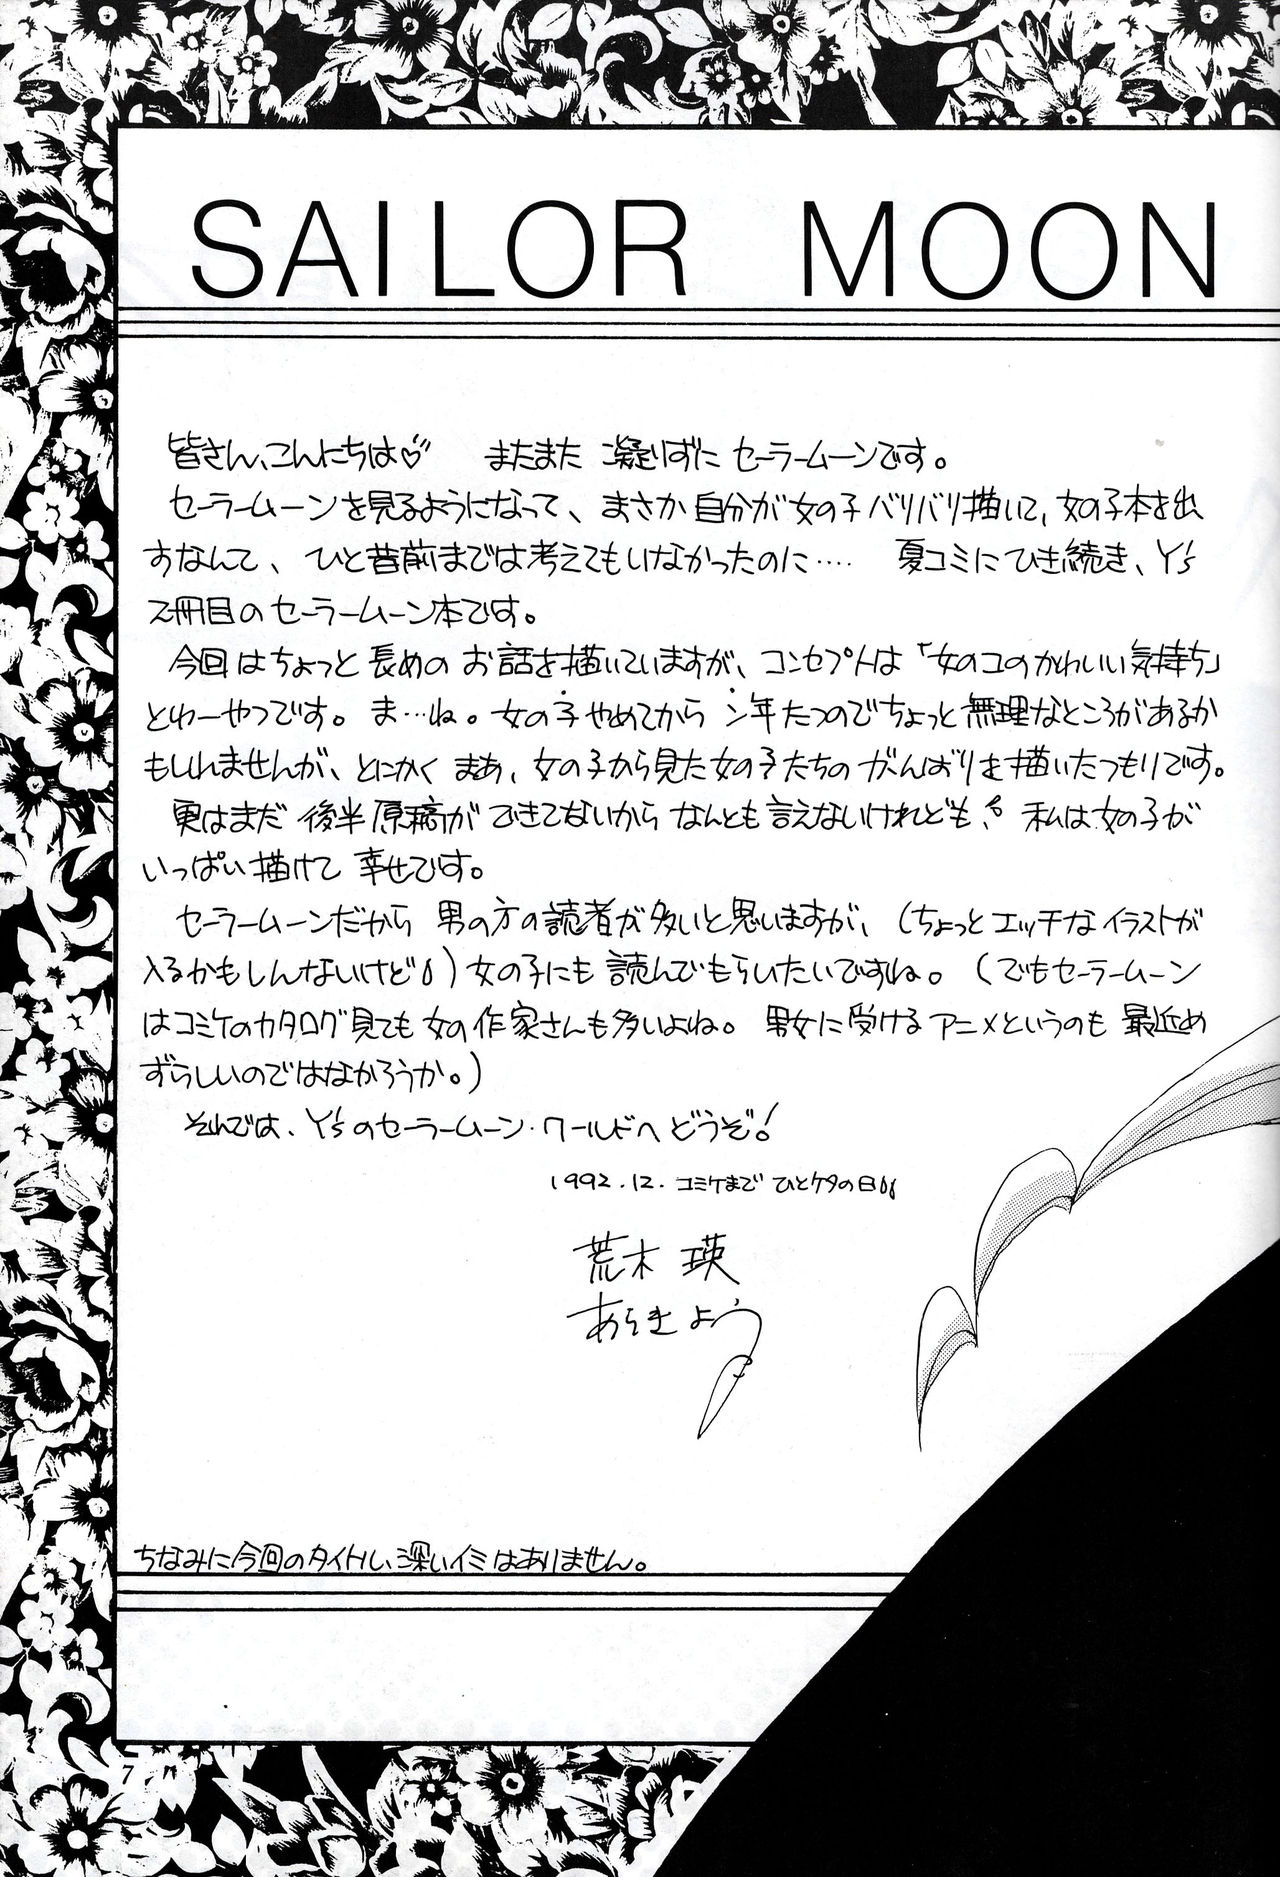 SAILOR MOON
皆さん、こんにちは♡ またまた凝りずにセーラームーンです。
セーラームーンを見るようになって、まさか自分が女の子バリバリ描いて、女の子本を出
すなんて、ひと昔前までは考えてもいなかったのに…‥ 夏コミにひき続き、Y's
2冊目のセーラームーン本です。
今回はちょっと長めのお話を描いていますが、コンセプトは「女のコのかわいい気持ち」
とゆーやつです。ま…ね。女の子やめてからン年たつのでちょっと無理なところがあるか
もしれませんが、とにかくまあ、女の子から見た女の子たちのがんばりを描いたつもりです。
実はまだ後半原稿ができてないからなんとも言えないけれども、私は女の子が
いっぱい描けて幸せです。
セーラームーンだから男の方の読者が多いと思いますが、(ちょっとエッチなイラストが
入るかもしんないけど)女の子にも読んでもらいたいですね。(でもセーラームーン
はコミケのカタログ見ても女の作家さんも多いよね。男女に受けるアニメというのも最近め
ずらしいのではなかろうか。)
それでは、Y'sのセーラームーン・ワールドへどうぞ!
1992.12. コミケまでひとケタの日
荒木 瑛
あらきよう
ちなみに今回のタイトル、深いイミはありません。
7